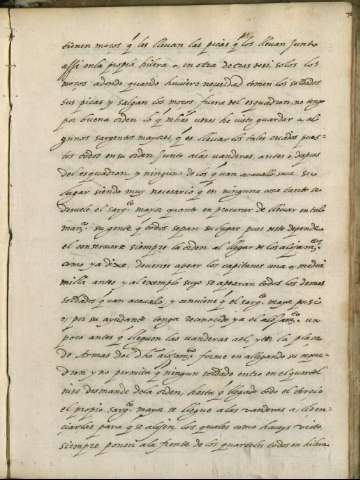 tienen moços q̃ les lleuan las picas q̃ las lleuan junto
assi en la propia hilera o en otra detras de si, solos los
moços adonde quando huuiere neçesidad tomen los soldados
sus picas y salgan los moços fuera del esquadron, no tengo
por buena orden lo q̃ muchas veces he visto guardar a al
gunos sargentos mayores, q̃ es lleuar los tales soldados pues
tos todos en su orden junto a las vanderas antes o despues
del esquadron, y ninguno de los q̃ van a cauallo en su
lugar siendo muy neçesario q̃ en ninguna cosa tanto se
desuele el sargto mayor quanto en procurar de lleuar en tal
manª su gente q̃ todos sepan su lugar pues deste depende
el conseruar siempre la orden al llegar de los alojamtos
como ya dixe, deuense apear los capitanes una o media
milla antes y al exemplo suyo se apearan todos los demas
soldados q̃ van a cauallo, y conuiene q̃ el sargto mayor por si
o por su ayudante tenga reconocido ya el alojamto un
poco antes q̃ lleguen las vanderas a el, y en la plaça
de Armas del dho alojamto forme en allegando su esqua
dron y no permita q̃ ningun soldado entre en el quartel
ni se desmande de la orden, hasta q̃ llegado todo el terçio
el propio sargto mayor se llegue a las vanderas a liçen
ciarlas para q̃ se alojen los quales como haueys visto
siempre ponen a la frente de los quarteles todos en hilera